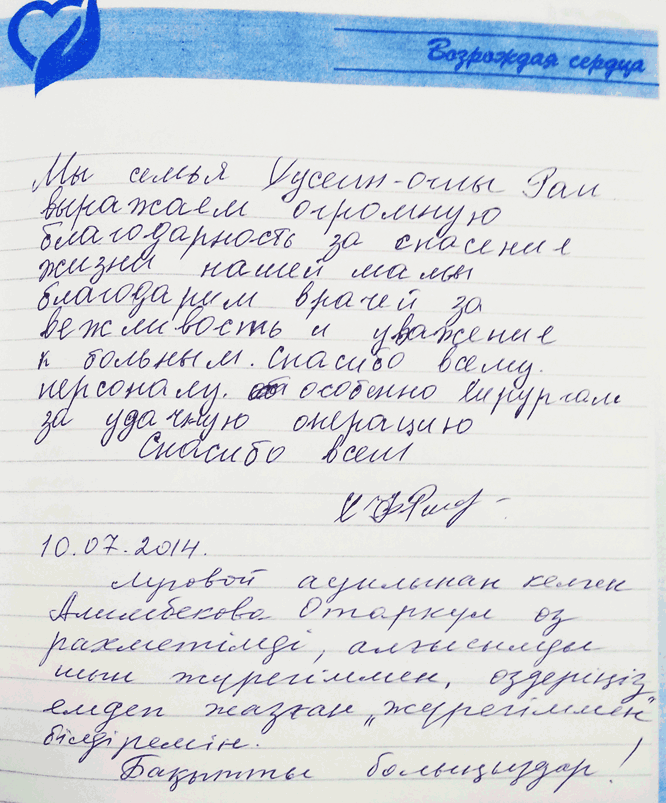 Возрождая сердца
Мы семья Хусеин-оглы Раи
выражаем огромную
благодарность за спасение
жизни нашей мамы
благодарим врачей за
вежливость и уважение
к больным. Спасибо всему.
персоналу. особенно хирургам
за удачную операцию
Спасибо всем
10.07.2014.
Луговой ауилынан келген
Алимбекова Отаркул оз
рахметімді, алғысымды
шын жүрегіммен, оздеріңіз
емдеп жазған „жүрегіммен"
білдіремін.
Бақытты болыңыздар!